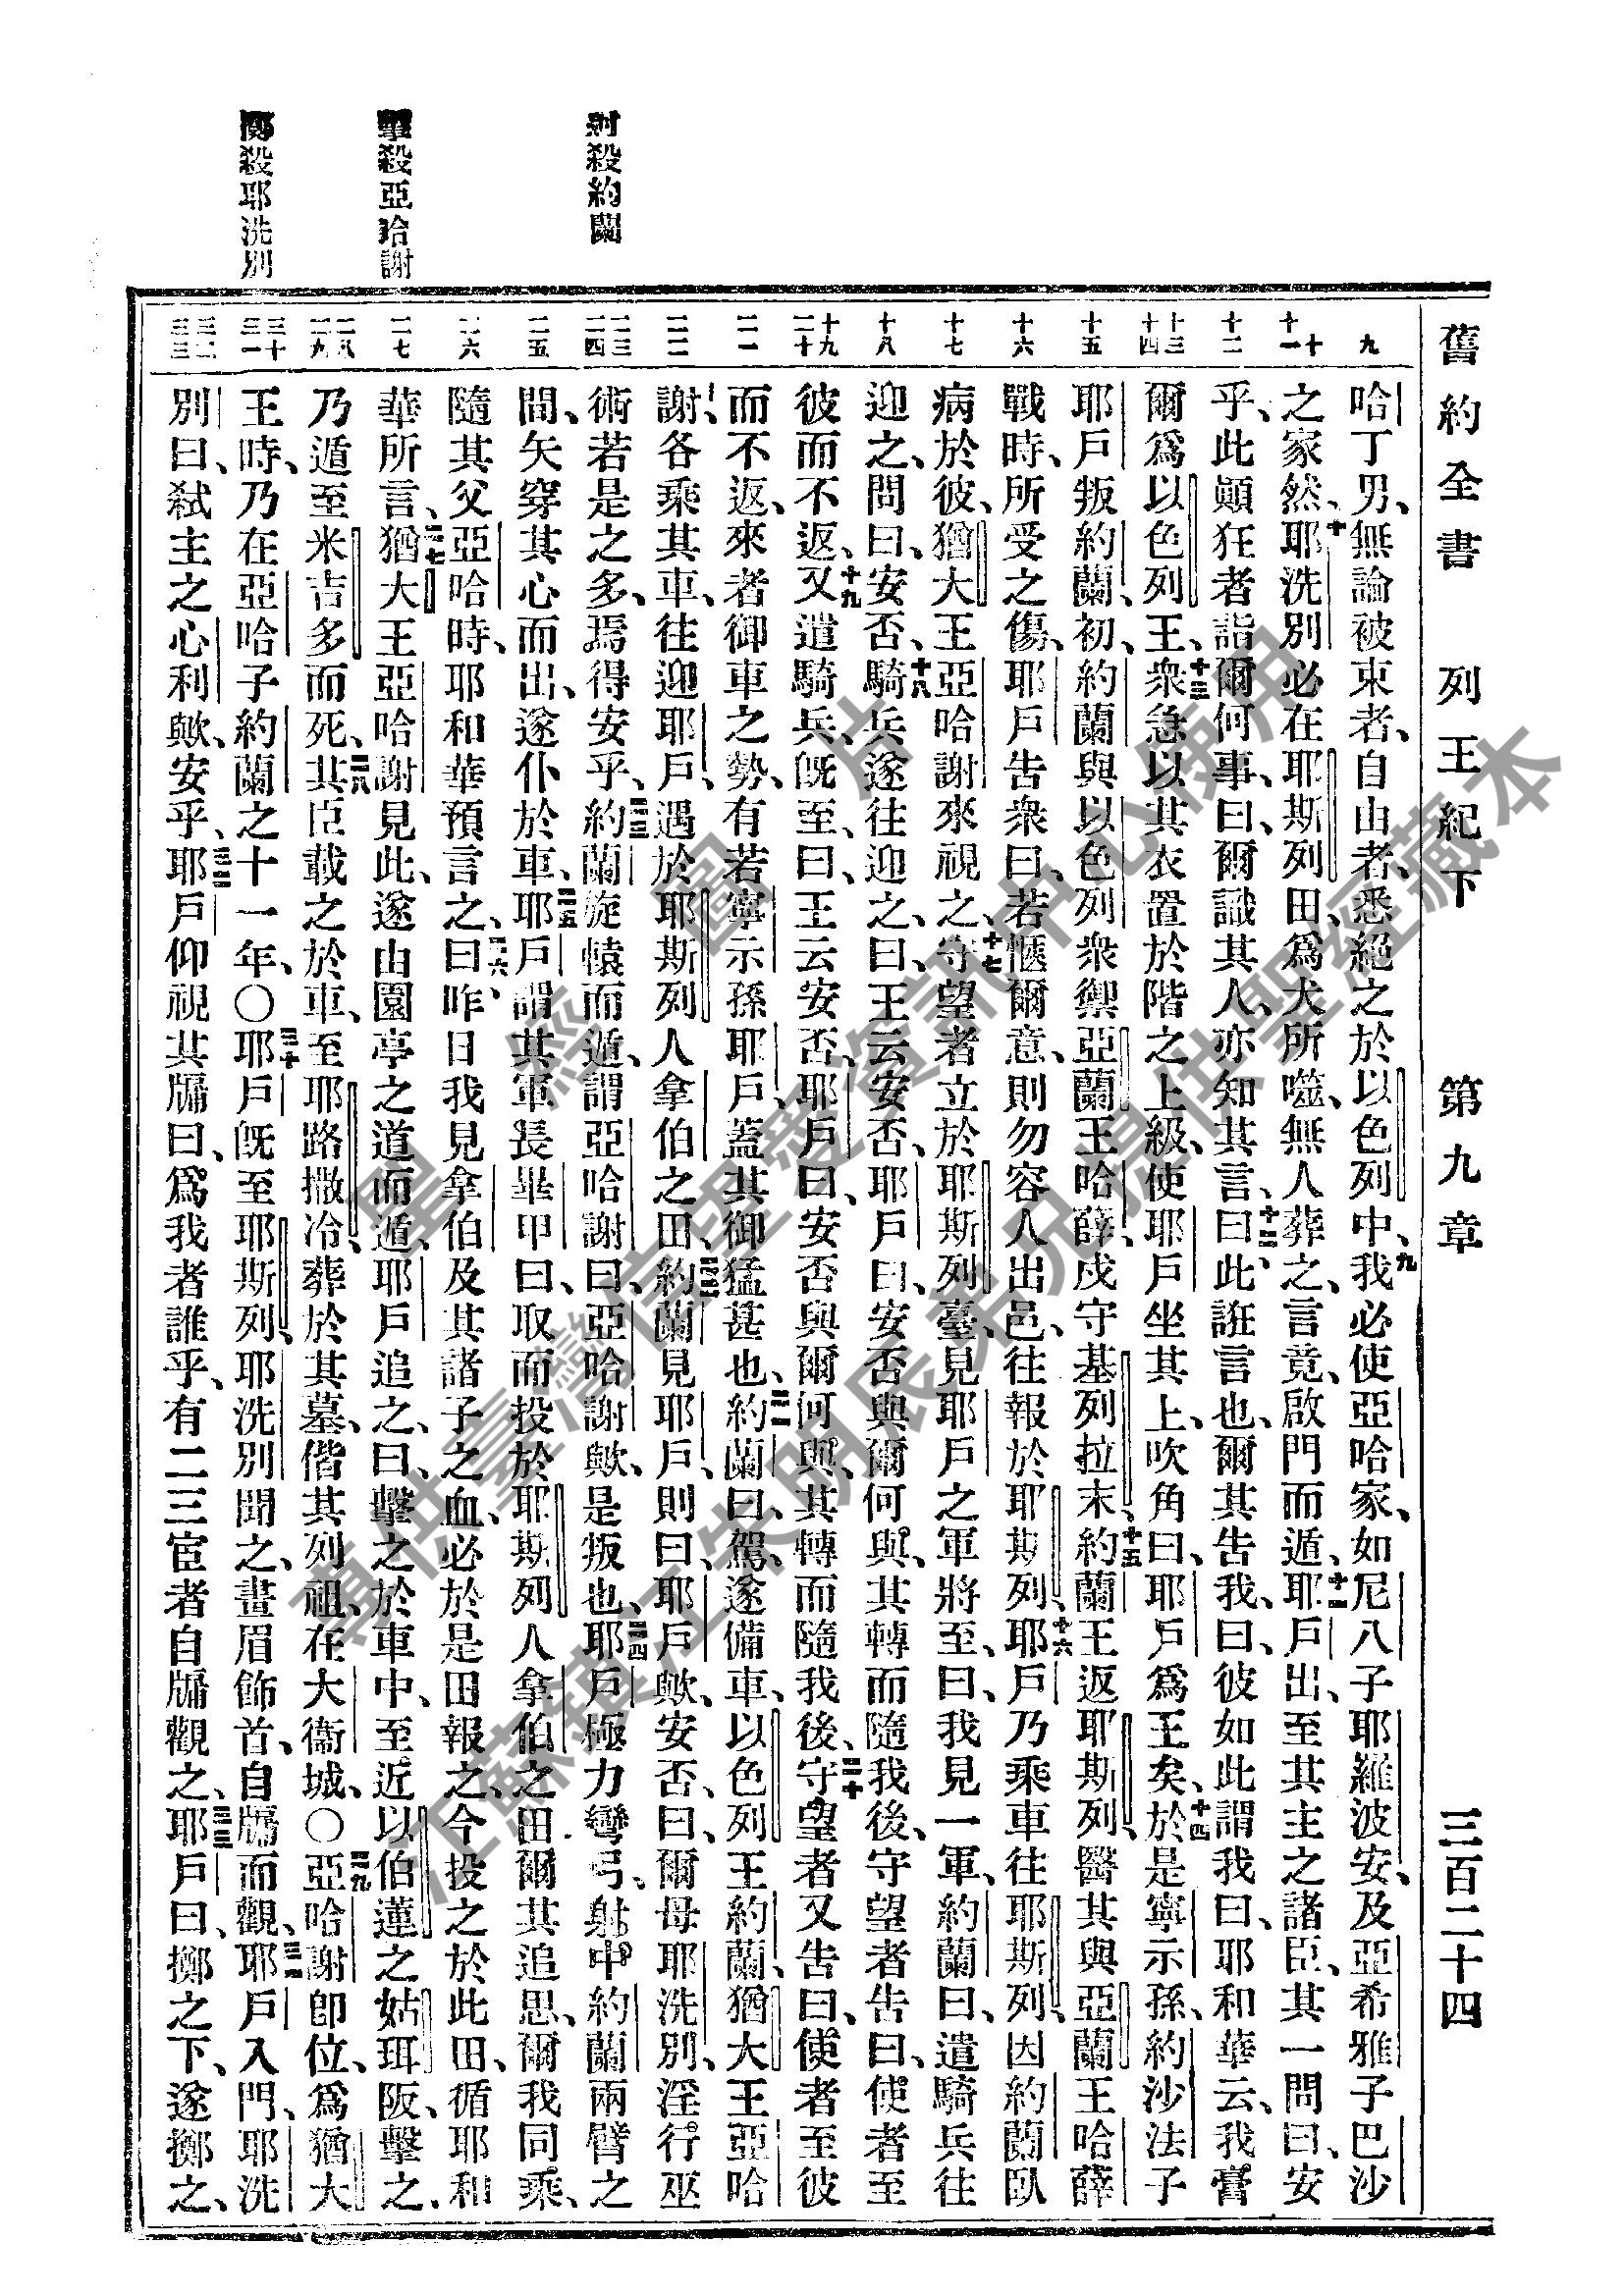 舊約全書　列王紀下　第九章　三百二十四
九
哈丁男、無論被束者、自由者、悉絕之於以色列中、九我必使亞哈家、如尼八子耶羅波安、及亞希雅子巴沙
十 十一
之家然、十耶洗別必在耶斯列田、爲犬所噬、無人葬之、言竟、啟門而遁、十一耶戶出、至其主之諸臣、其一問曰、安
十二
乎、此顚狂者詣爾何事、曰、爾識其人、亦知其言、十二曰、此誑言也、爾其告我、曰、彼如此謂我曰、耶和華云、我膏
十三 十四
爾爲以色列王、十三衆急以其衣置於階之上級、使耶戶坐其上、吹角曰、耶戶爲王矣、十四於是寧示孫、約沙法子
十五
耶戶叛約蘭、初、約蘭與以色列衆禦亞蘭王哈薛、戍守基列拉末、十五約蘭王返耶斯列、醫其與亞蘭王哈薛
十六
戰時、所受之傷、耶戶告衆曰、若愜爾意、則勿容人出邑、往報於耶斯列、十六耶戶乃乘車往耶斯列、因約蘭臥
十七
病於彼、猶大王亞哈謝來視之、十七守望者立於耶斯列臺、見耶戶之軍將至、曰、我見一軍、約蘭曰、遣騎兵往
十八
迎之、問曰、安否、十八騎兵遂往迎之、曰、王云安否、耶戶曰、安否與爾何與、其轉而隨我後、守望者告曰、使者至
十九 二十
彼而不返、十九又遣騎兵、旣至、曰、王云安否、耶戶曰、安否與爾何與、其轉而隨我後、二十守望者又告曰、使者至彼
二一
而不返、來者御車之勢、有若寧示孫耶戶、蓋其御猛甚也、二一約蘭曰、駕、遂備車、以色列王約蘭、猶大王亞哈
二二
謝、各乘其車、往迎耶戶、遇於耶斯列人拿伯之田、二二約蘭見耶戶、則曰、耶戶歟、安否、曰、爾母耶洗別、淫行巫
二三 二四
術若是之多、焉得安乎、二三約蘭旋轅而遁、謂亞哈謝曰、亞哈謝歟、是叛也、二四耶戶極力彎弓、射中約蘭兩臂之
二五
間、矢穿其心而出、遂仆於車、二五耶戶謂其軍長畢甲曰、取而投於耶斯列人拿伯之田、爾其追思、爾我同乘、
二六
隨其父亞哈時、耶和華預言之、二六曰、昨日我見拿伯及其諸子之血、必於是田報之、今投之於此田、循耶和
二七
華所言、二七猶大王亞哈謝見此、遂由園亭之道而遁、耶戶追之、曰、擊之於車中、至近以伯蓮之姑珥阪、擊之、
二八 二九
乃遁至米吉多而死、二八其臣載之於車、至耶路撒冷、葬於其墓、偕其列祖、在大衞城、〇二九亞哈謝卽位、爲猶大
三十 三一
王時、乃在亞哈子約蘭之十一年、〇三十耶戶旣至耶斯列、耶洗別聞之、畫眉飾首、自牖而觀、三一耶戶入門、耶洗
三二 三三
別曰、弒主之心利歟、安乎、三二耶戶仰視其牖曰、爲我者誰乎、有二三宦者自牖觀之、三三耶戶曰、擲之下、遂擲之、
射殺約蘭
擊殺亞哈謝
擲殺耶洗別
聖經圖片
專供臺灣信望愛資訊中心使用
江蘇鎮江朱明辰弟兄提供聖經藏本